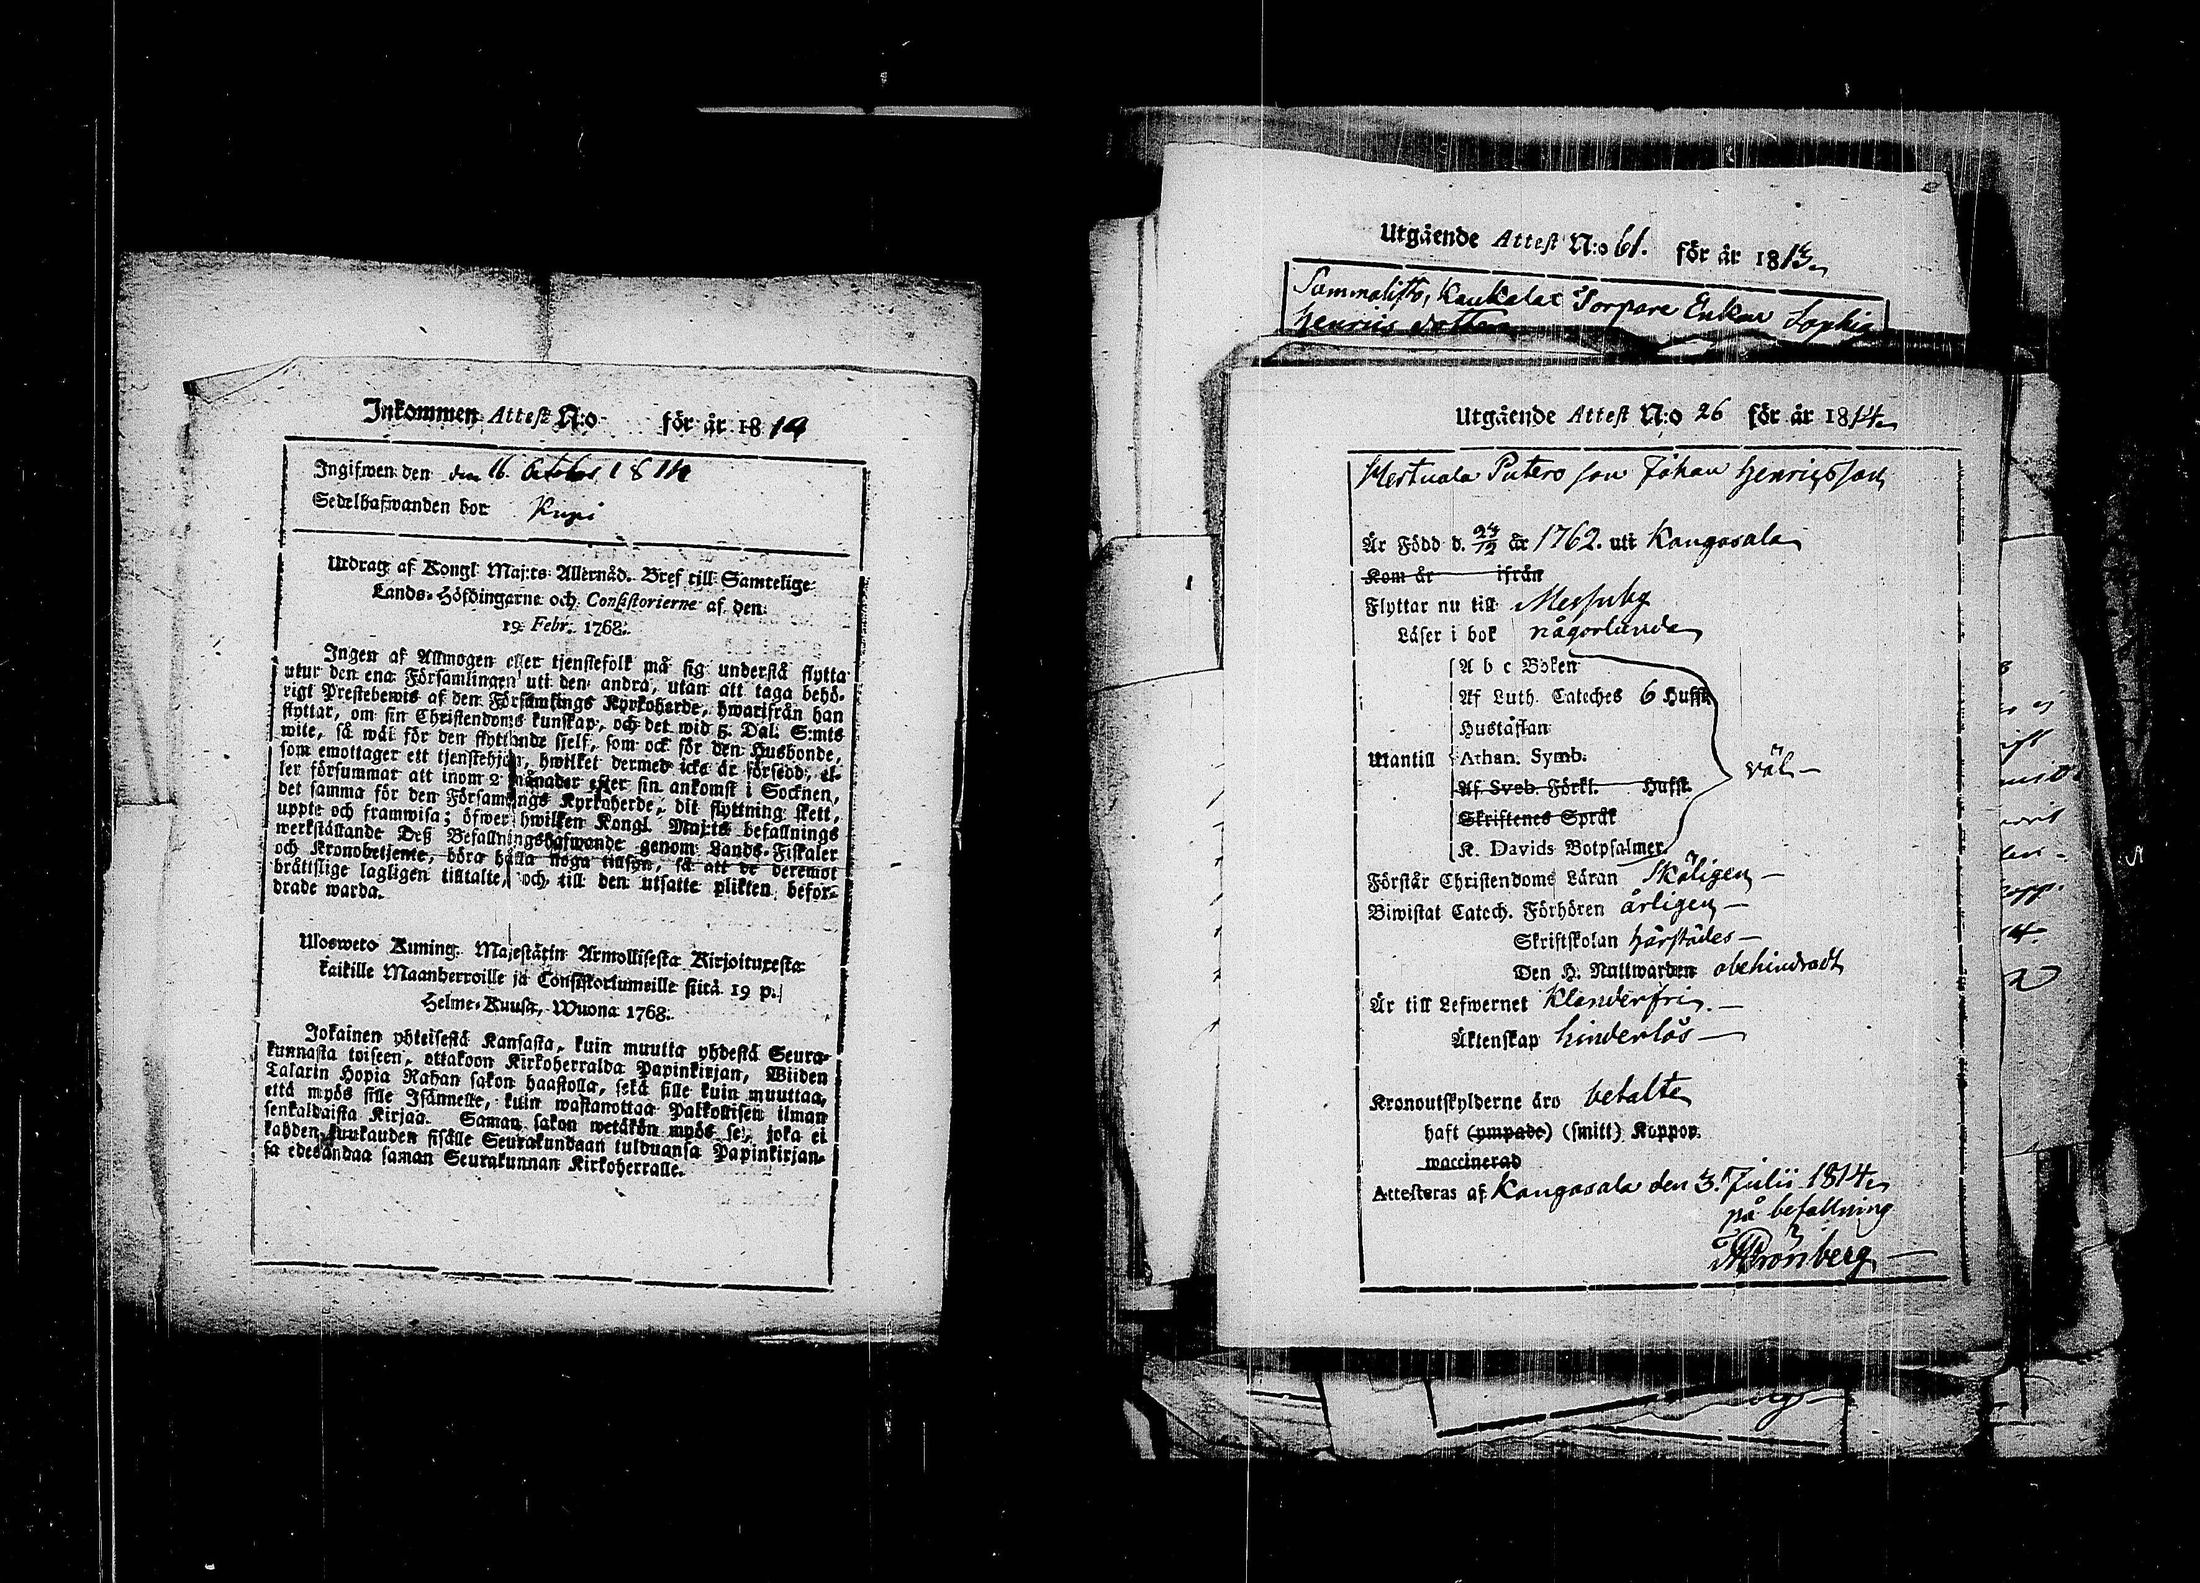 Inkommen Attest N:o för år 1814
Ingifwen den den 16 October 1814
Sedelhafwanden bor Kupi
Utdrag af Kongl. Maj:ts Allernåd. Bref till Samtelige
Lands-Höfdingarne och Consistorierne af den
19 Febr. 1768.
Ingen af Allmogen eller tjenstefolk må sig understå flytta
utur den ena Församlingen uti den andra, utan att taga behö-
rigt Prestebewis af den Församlings Kyrkoherde, hwarifrån han
flyttar, om sin Christendoms kunskap, och det wid 5. Dal. S:mts
wite, så wäl för den flyttande sjelf, som ock för den Husbonde,
som emottager ett tjenstehjon, hwilket dermed icke är försedd, el-
ler försummar att inom 2 månader efter sin ankomst i Socknen,
det samma för den Församlings Kyrkoherde, dit flyttning skett,
uppte och framwisa; öfwer hwilken Kongl. Maj:ts befallnings
werkställande Deß Befallningshafwande genom Lands-Fiskaler
och Kronobetjente, böra hålla noga tillsyn, så att de deremot
bråttslige lagligen tilltalte, och till den utsatte plikten befor-
drade warda.
Ulosweto Kuning. Majestätin Armollisesta Kirjoituxesta
kaikille Maanherroille ja Consistoriumeille siitä 19 p.
Helme-Kuusa, Wuona 1768.
Jokainen yhteisestä Kansasta, kuin muutta yhdestä Seura-
kunnasta toiseen, ottakoon Kirkoherralda Papinkirjan, Wiiden
Talarin Hopia Rahan sakon haastolla, sekä sille kuin muuttaa,
että myös sille Isännelle, kuin wastanottaa Palkollisen ilman
senkaldaista Kirjaa. Saman sakon wetäkön myös se, joka ei
kahden kuukauden sisälle Seurakundaan tulduansa Papinkirjan-
sa edesandaa saman Seurakunnan Kirkoherralle.
Utgående Attest N:o 61. för år 1813
Sammalisto, Kaukalas Torpare Enkan Sophia
Henrics dotter
Utgående Attest N:o 26 för år 1814
Puters son Johan Henricsson
Är Född d. 24/12 år 1762. uti Kangasala
Kom år ifrån
Flyttar nu till Messuby
Läser i bok någorlunda
A b c Boken
Af Luth. Cateches 6 Hufst.
Hustaflan
Utantill Athan. Symb.
Af Sveb. Förkl. Hufst.
Skriftenes Språk
K. Davids Botpsalmer.
väl
Förstår Christendoms Läran Skäligen
Biwistat Catech. Förhören årligen
Skriftskolan härstädes
Den H. Nattwarden obehindradt
Är till Lefwernet Klanderfri.
Äktenskap hinderlös
Kronoutskylderne äro betalte
haft (ympade) (smitt) Koppor.
waccinerad
Attesteras af Kangasala den 3. Julii 1814
på befallning
Grönberg